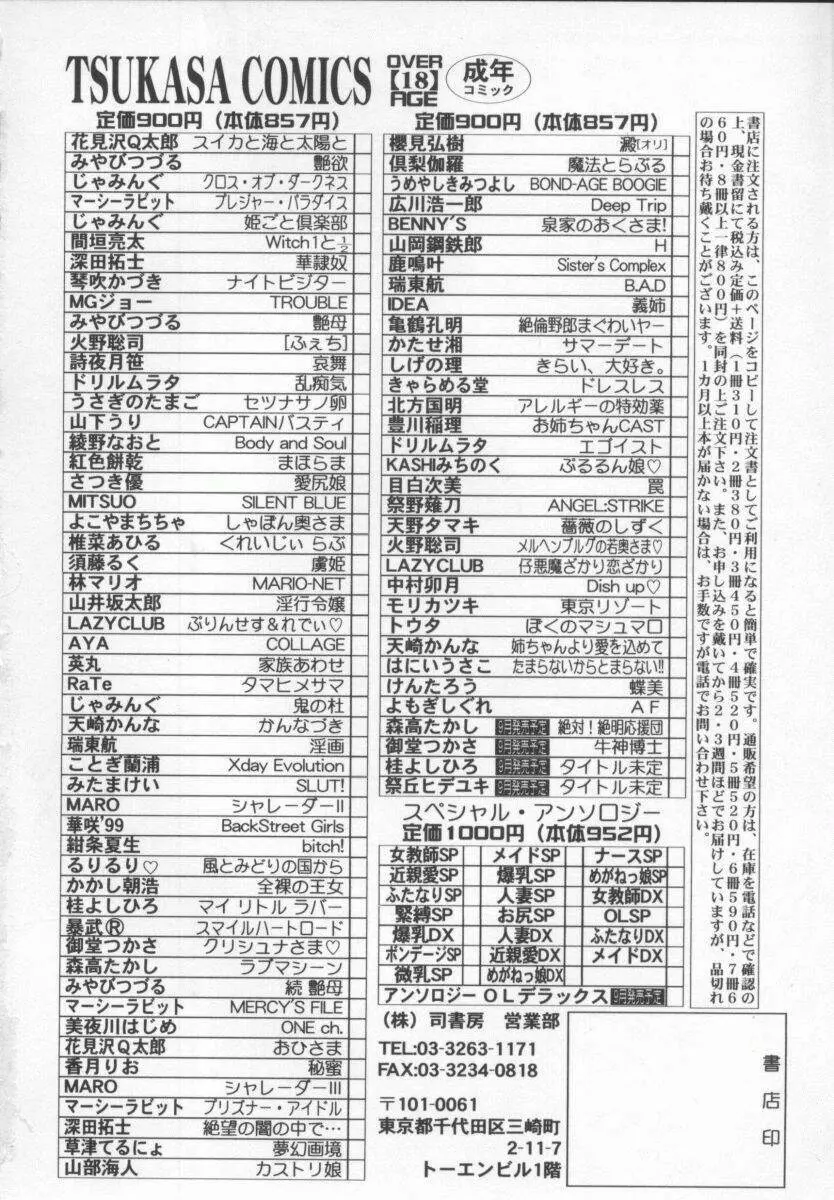 TSUKASA COMICS OVER【18】AGE 成年コミック
定価900円(本体857円)
花見沢Q太郎 スイカと海と太陽と
みやびつづる 艶欲
じゃみんぐ クロス・オブ・ダークネス
マーシーラビット プレジャー・パラダイス
じゃみんぐ 姫ごと倶楽部
間垣亮太 Witch1と½
深田拓士 華隷奴
琴吹かづき ナイトビジター
MGジョー TROUBLE
みやびつづる 艶母
火野聡司 [ふぇち]
詩夜月笹 哀舞
ドリルムラタ 乱痴気
うさぎのたまご セツナサノ卵
山下うり CAPTAINバスティ
綾野なおと Body and Soul
紅色餅乾 まほらま
さつき優 愛尻娘
MITSUO SILENT BLUE
よこやまちちゃ しゃぼん奥さま
椎菜あひる くれいじぃ らぶ
須藤るく 虜姫
林マリオ MARIO-NET
山井坂太郎 淫行令嬢
LAZYCLUB ぷりんせす&れでぃ♡
AYA COLLAGE
英丸 家族あわせ
RaTe タマヒメサマ
じゃみんぐ 鬼の杜
天崎かんな かんなづき
瑞東航 淫画
ことぎ蘭浦 Xday Evolution
みたまけい SLUT!
MARO シャレーダーII
華咲'99 BackStreet Girls
紺条夏生 bitch!
るりるり♡ 風とみどりの国から
かかし朝浩 全裸の王女
桂よしひろ マイ リトル ラバー
暴武Ⓡ スマイルハートロード
御堂つかさ クリシュナさま♡
森高たかし ラブマシーン
みやびつづる 続 艶母
マーシーラビット MERCY'S FILE
美夜川はじめ ONE ch.
花見沢Q太郎 おひさま
香月りお 秘蜜
MARO シャレーダーIII
マーシーラビット プリズナー・アイドル
深田拓士 絶望の闇の中で…
草津てるにょ 夢幻画境
山部海人 カストリ娘
定価900円(本体857円)
櫻見弘樹 澱[オリ]
倶梨伽羅 魔法とらぶる
うめやしきみつよし BOND-AGE BOOGIE
広川浩一郎 Deep Trip
BENNY'S 泉家のおくさま!
山岡鋼鉄郎 H
鹿鳴叶 Sister's Complex
瑞東航 B.A.D
IDEA 義姉
亀鶴孔明 絶倫野郎まぐわいヤー
かたせ湘 サマーデート
しげの理 きらい、大好き。
きゃらめる堂 ドレスレス
北方国明 アレルギーの特効薬
豊川稲理 お姉ちゃんCAST
ドリルムラタ エゴイスト
KASHIみちのく ぷるるん娘♡
目白次美 罠
祭野薙刀 ANGEL:STRIKE
天野タマキ 薔薇のしずく
火野聡司 メルヘンブルグの若奥さま♡
LAZYCLUB 仔悪魔ざかり恋ざかり
中村卯月 Dish up♡
モリカツキ 東京リゾート
トウタ ぼくのマシュマロ
天崎かんな 姉ちゃんより愛を込めて
はにいうさこ たまらないからとまらない!!
けんたろう 蝶美
よもぎしぐれ AF
森高たかし 9月発売予定 絶対!絶明応援団
御堂つかさ 9月発売予定 牛神博士
桂よしひろ 9月発売予定 タイトル未定
祭丘ヒデユキ 9月発売予定 タイトル未定
スペシャル・アンソロジー
定価1000円(本体952円)
女教師SP メイドSP ナースSP
近親愛SP 爆乳SP めがねっ娘SP
ふたなりSP 人妻SP 女教師DX
緊縛SP お尻SP OLSP
爆乳DX 人妻DX ふたなりDX
ボンデージSP 近親愛DX メイドDX
微乳SP めがねっ娘DX
アンソロジー OLデラックス 9月発売予定
(株)司書房 営業部
TEL:03-3263-1171
FAX:03-3234-0818
〒101-0061
東京都千代田区三崎町
2-11-7
トーエンビル1階
書店に注文される方は、このページをコピーして注文書としてご利用になると簡単で確実です。通販希望の方は、在庫を電話などで確認の
上、現金書留にて税込み定価+送料(1冊310円・2冊380円・3冊450円・4冊520円・5冊520円・6冊590円・7冊6
60円・8冊以上一律800円)を同封の上ご注文下さい。また、お申し込みを戴いてから2・3週間ほどでお届けしていますが、品切れ
の場合お待ち戴くことがございます。1カ月以上本が届かない場合は、お手数ですが電話でお問い合わせ下さい。
書店印